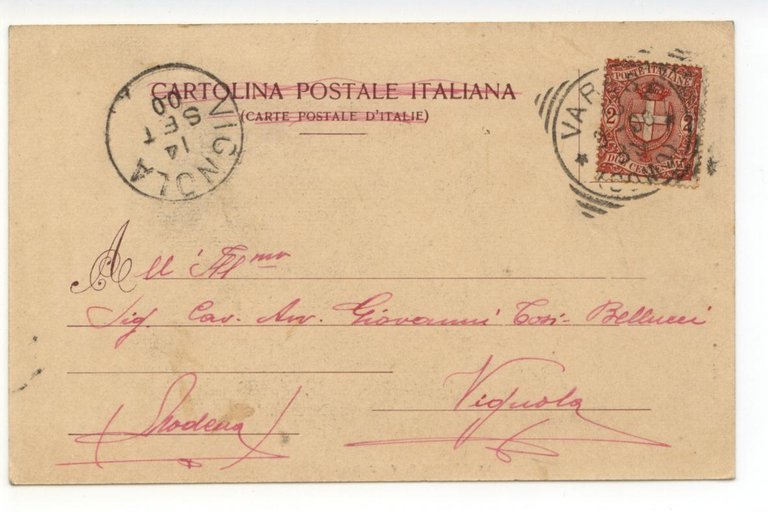 CARTOLINA POSTALE ITALIANA
(CARTE POSTALE D'ITALIE)
VIGNOLA
14
SET
00
POSTE ITALIANE
2 2
DUE CENTESIMI
All' Ill.mo
Sig. Cav. Avv. Giovanni Tosi-Bellucci
Vignola
(Modena)